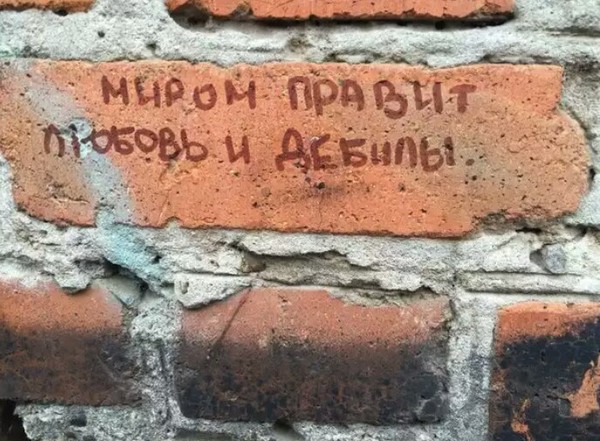 МИРОМ ПРАВИТ
ЛЮБОВЬ И ДЕБИЛЫ.